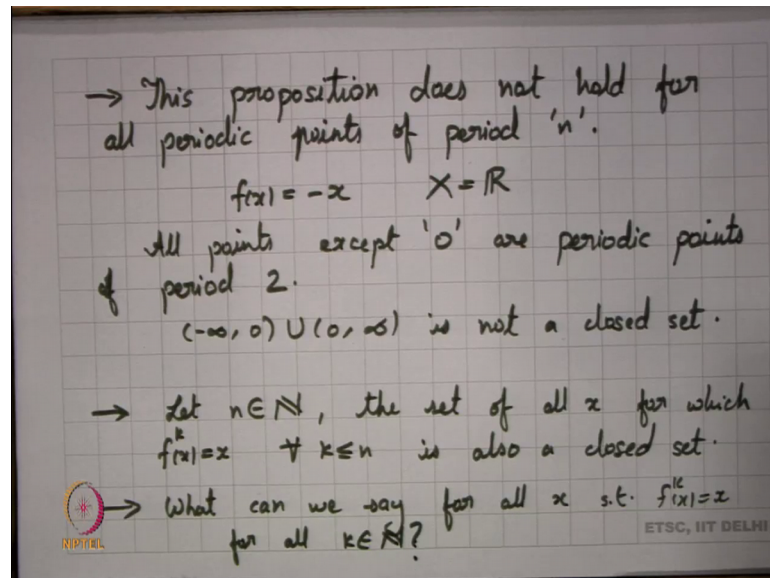 → This proposition does not hold for
all periodic points of period 'n'.
f(x) = -x X = ℝ
All points except '0' are periodic points
of period 2.
(-∞, 0) ∪ (0, ∞) is not a closed set.
→ Let n ∈ ℕ, the set of all x for which
fᵏ(x) = x ∀ k ≤ n is also a closed set.
→ What can we say for all x s.t. fᵏ(x) = x
for all k ∈ ℕ?
NPTEL
ETSC, IIT DELHI